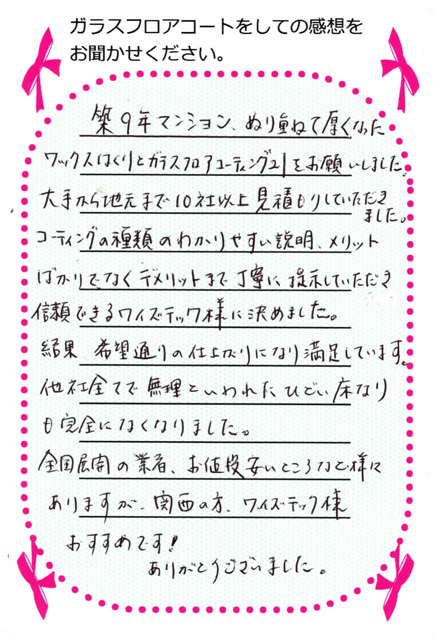 ガラスフロアコートをしての感想を
お聞かせください。
築9年マンション、ぬり重ねて厚くなった
ワックスはくりとガラスフロアコーティング21をお願いしました。
大手から地元まで10社以上見積もりしていただき
ました。
コーティングの種類のわかりやすい説明、メリット
ばかりでなくデメリットまで丁寧に提示していただき
信頼できるワイズテック様に決めました。
結果 希望通りの仕上がりになり満足しています。
他社全てで無理といわれたひどい床なり
も完全になくなりました。
全国展開の業者、お値段安いところなど様々に
ありますが、関西の方、ワイズテック様
おすすめです!
ありがとうございました。